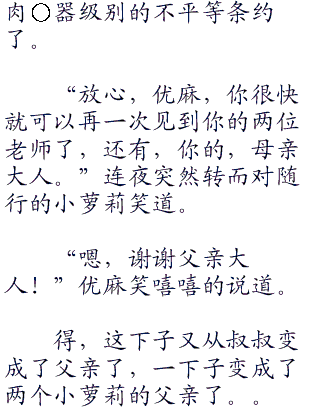 肉〇器级别的不平等条约
了。
“放心，优麻，你很快
就可以再一次见到你的两位
老师了，还有，你的，母亲
大人。”连夜突然转而对随
行的小萝莉笑道。
“嗯，谢谢父亲大
人！”优麻笑嘻嘻的说道。
得，这下子又从叔叔变
成了父亲了，一下子变成了
两个小萝莉的父亲了。。